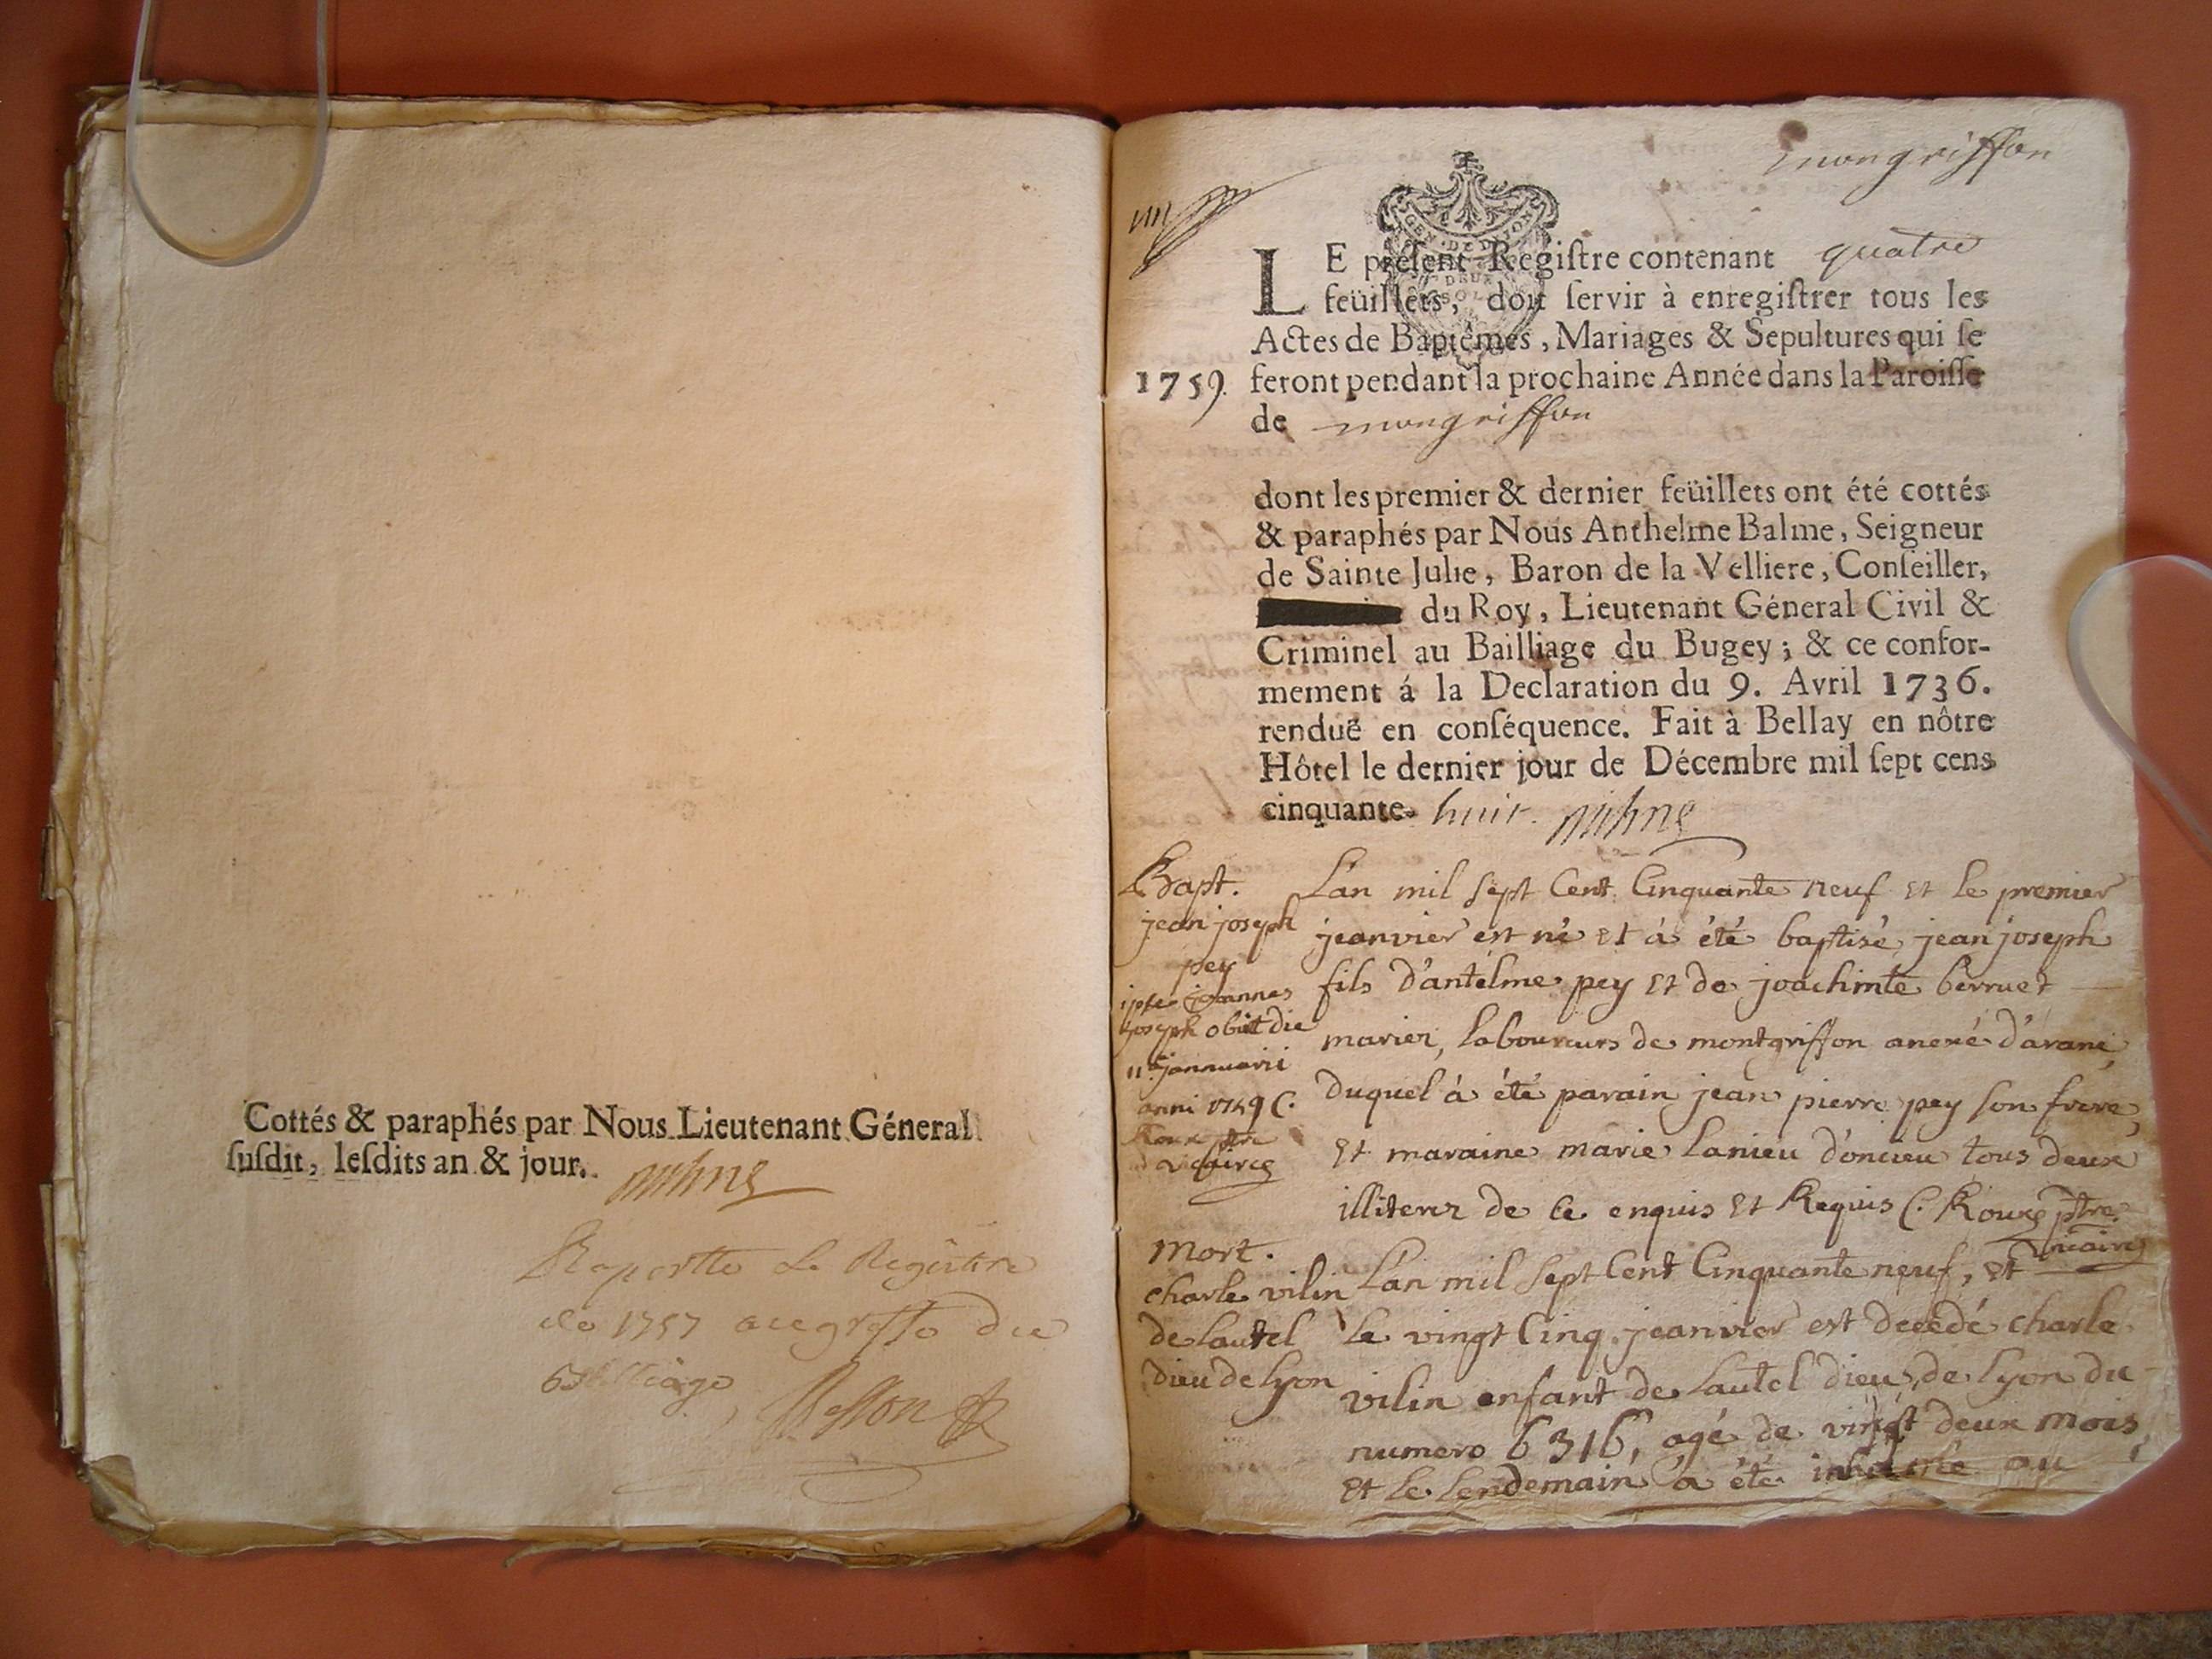 Cottés & paraphés par Nous Lieutenant Géneral
ſuſdit, leſdits an & jour.
Raportte Le Registre
de 1757 au greffe du
Balliage
mongriffon
GEN · DE DIJON
DEUX
SOLS
LE préſent Regiſtre contenant quatre
feüillets, doit ſervir à enregiſtrer tous les
Actes de Baptêmes, Mariages & Sepultures qui ſe
1759. feront pendant la prochaine Année dans la Paroiſſe
de mongriffon
dont les premier & dernier feüillets ont été cottés
& paraphés par Nous Anthelme Balme, Seigneur
de Sainte Julie, Baron de la Velliere, Conſeiller,
du Roy, Lieutenant Géneral Civil &
Criminel au Bailliage du Bugey; & ce confor-
mement á la Declaration du 9. Avril 1736.
renduë en conſéquence. Fait à Bellay en nôtre
Hôtel le dernier jour de Décembre mil ſept cens
cinquante- huit.
Bapt.
jean joseph
pey
ipse joannes
joseph obiit die
11a jannuarii
anni 1759 C.
Roux ptre
vicaire
L'an mil sept Cent Cinquante neuf et le premier
jeanvier est né et à été baptisé jean joseph
fils d'antelme pey et de joachinte berruet
mariez, laboureurs de montgriffon anexé d'arane
duquel à été parain jean pierre pey son frere,
et maraine marie Lanieu d'oncieu tous deux
illiterez de ce enquis et Requis C. Roux ptre
vicaire
mort.
charle vilin
de lautel
dieu de lyon
L'an mil sept Cent Cinquante neuf, et
le vingt Cinq jeanvier est decedé charle
vilin enfant de lautel dieu de lyon du
numero 6316, agé de vingt deux mois,
et le lendemain à été inhumé au